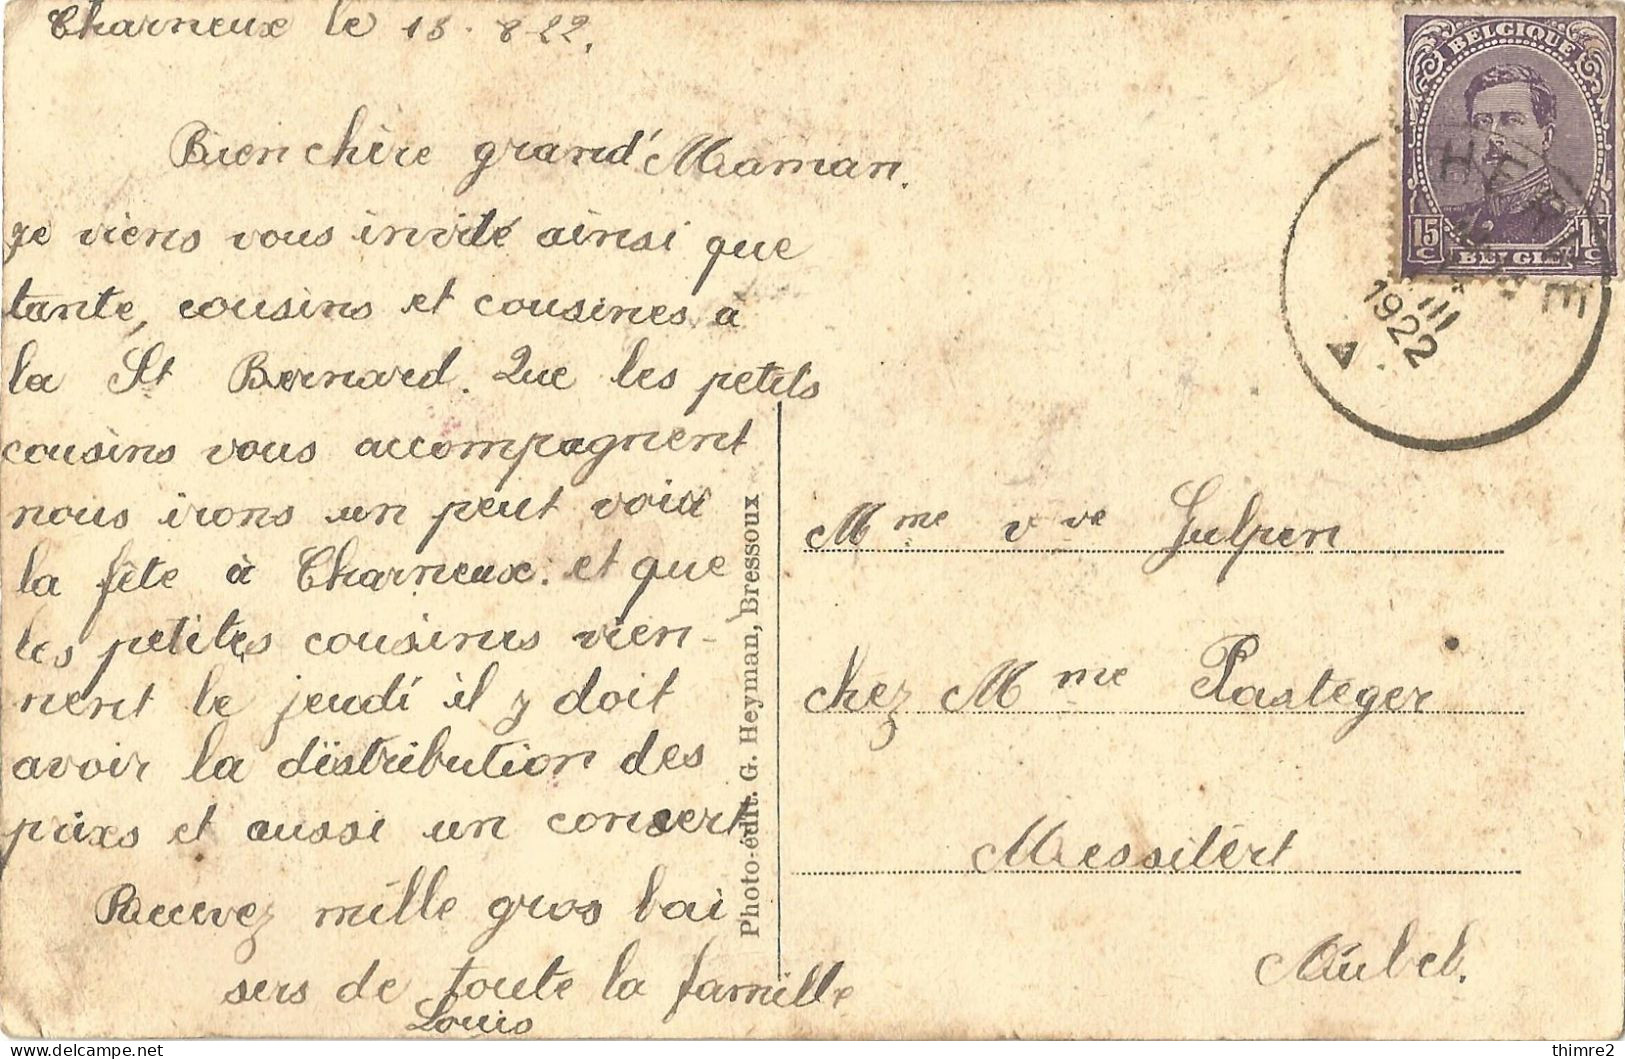 Charneux le 13-8-22.
Bien chère grand'Maman.
je viens vous invité ainsi que
tante, cousins et cousines à
la St Bernard. Que les petits
cousins vous accompagnent
nous irons un peut voir
la fête à Charneux. et que
les petites cousines vien-
nent le jeudi il y doit
avoir la distribution des
prixs et aussi un consert
Recevez mille gros bai
sers de toute la famille
Louis
Photo-édit. G. Heyman, Bressoux
BELGIQUE
15 C
15 C
BELGIË
HERVE
VIII
1922
Mme vve Gulpen
chez Mme Plasteger
Messitert
Aubel.
thimre2